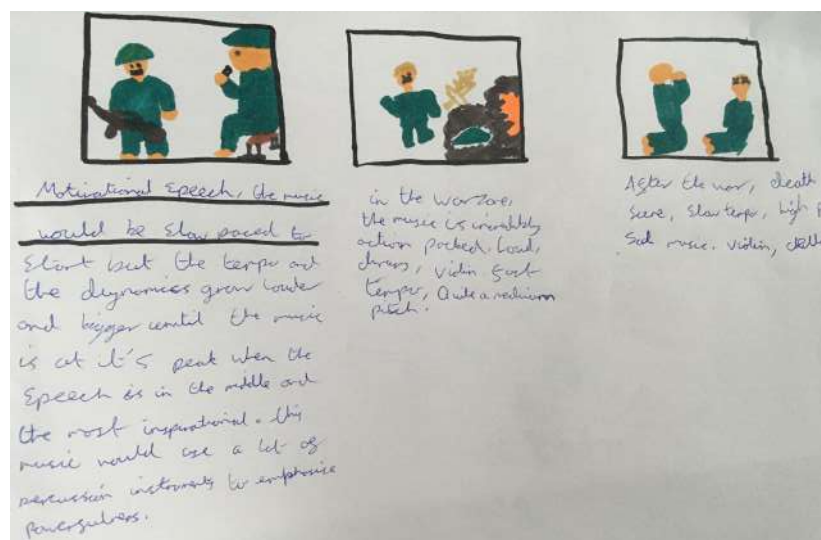 Motivational Speech, the music
would be slow paced to
start but the tempo and
the dynamics grow louder
and bigger until the music
is at it's peak when the
speech is in the middle and
the most inspirational. this
music would use a lot of
percussion instruments to emphasise
powerfulness.
in the warzone,
the music is incredibly
action packed. Loud,
drums, violin fast
tempo, Quite a medium
pitch.
After the war, death
scene, slow tempo, high
Sad music. violin,